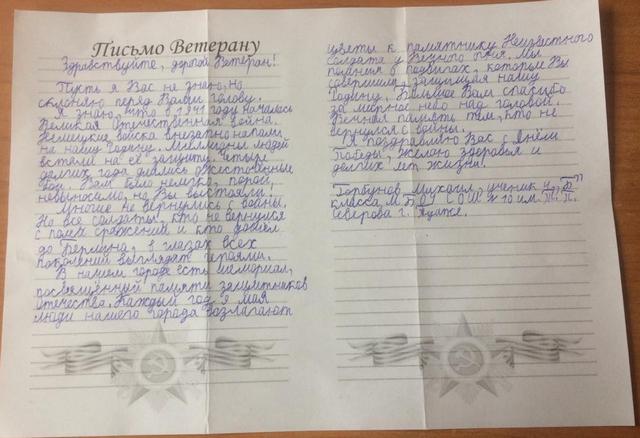 Письмо Ветерану
Здравствуйте, дорогой Ветеран!
Пусть я Вас не знаю, но
склоняю перед Вами голову.
Я знаю, что в 1941 году началась
Великая Отечественная война.
Немецкие войска внезапно напали
на нашу Родину. Миллионы людей
встали на её защиту. Четыре
долгих года длились ожесточённые
бои. Вам было нелегко, порой,
невыносимо, но Вы выстояли!
Многие не вернулись с войны.
Но все солдаты: кто не вернулся
с полей сражений и кто дошёл
до Берлина, в глазах всех
поколений выглядят героями.
В нашем городе есть мемориал,
посвящённый памяти защитников
отечества. Каждый год 9 мая
люди нашего города возлагают
цветы к памятнику Неизвестного
Солдата у Вечного огня. Мы
помним о подвигах, которые Вы
совершили, защищая нашу
Родину. Большое Вам спасибо
за мирное небо над головой.
Вечная память тем, кто не
вернулся с войны.
Я поздравляю Вас с Днём
Победы, желаю здоровья и
долгих лет жизни!
Горбунов Михаил, ученик 4 „Б”
класса МБОУ СОШ №10 им. П. П.
Северова г. Туапсе.